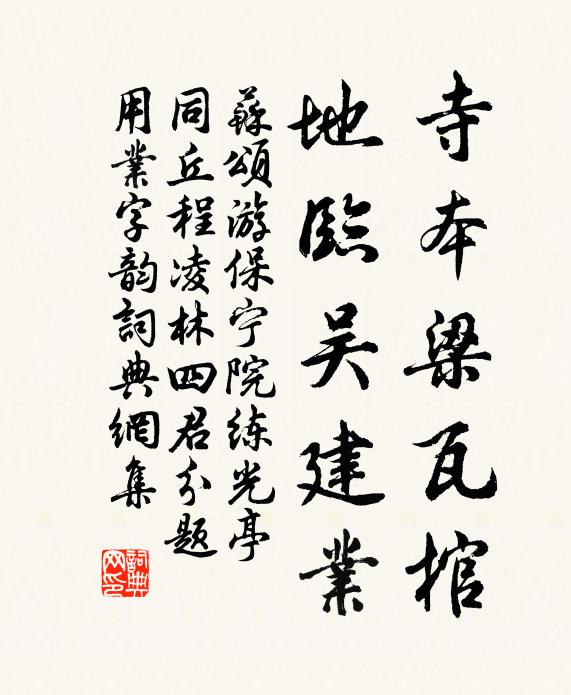 寺本梁瓦棺
地臨吴建業
蘇頌游保宁院练光亭
同丘程凌林四君分题
用業字韵詞典網集
詞典网印